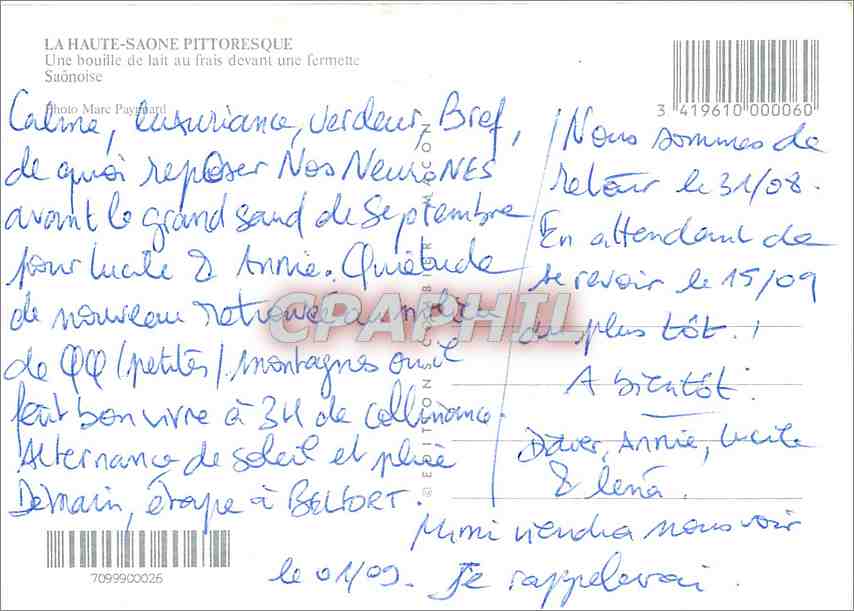 LA HAUTE-SAONE PITTORESQUE
Une bouille de lait au frais devant une fermette
Saônoise
Photo Marc Paygnard
3 419610 000060
Calme, luxuriance, verdeur. Bref,
de quoi reposer NOS NEURONES
avant le grand saud de Septembre
pour Lucile & Annie. Quiétude
de nouveau retrouvée au milieu
de QQ (petites) montagnes où il
fait bon vivre à 3H de Collinance.
Alternance de soleil et pluie
Demain, étape à BELFORT.
Nous sommes de
retour le 31/08.
En attendant de
se revoir le 15/09
au plus tôt !
A bientôt.
Annie, Lucile
& Lena.
Mimi viendra nous voir
le 01/09. Je rappelerai.
© EDITIONS COMBIER MACON
7099900026
CPAPHIL